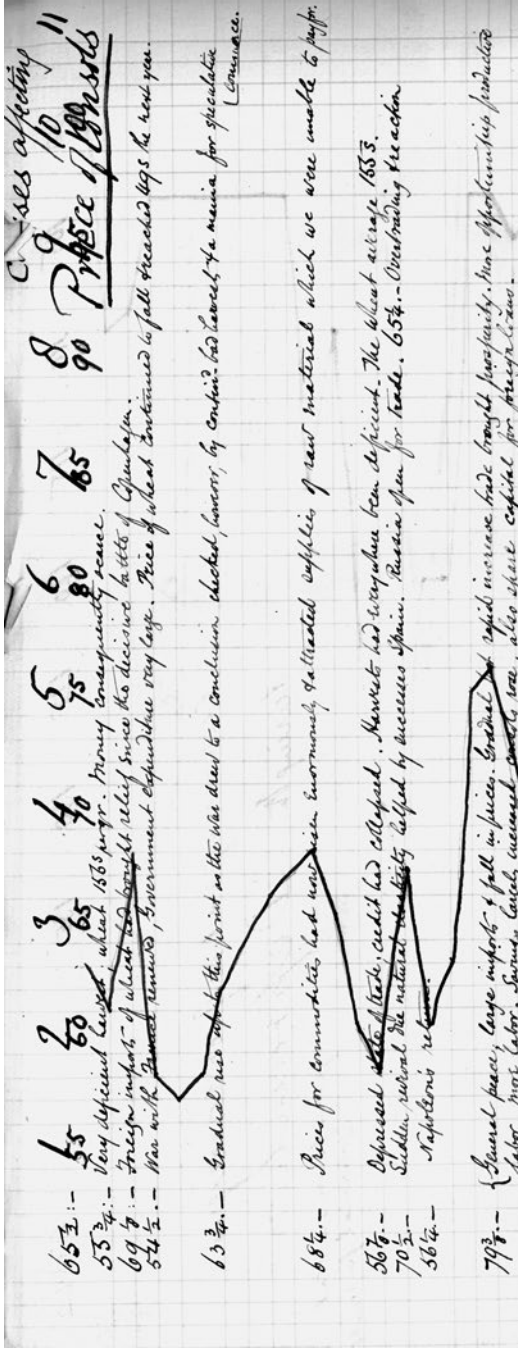 C ises affecting
Price of Consols
1 2 3 4 5 6 7 8 9 10 11
55 60 65 70 75 80 85 90 95 100
65½ :-
55¾ :- Very deficient harvest, wheat 156s per qr. Money consequently scarce.
69⅛ :- Foreign imports of wheat had brought relief since the decisive battle of Copenhagen.
54½ .- War with France renewed, Government expenditure very large. Price of wheat continued to fall & reached 49s the next year.
63¾ .- Gradual rise up to this point as the war drew to a conclusion checked, however, by contin. bad harvests & a mania for speculative
commerce.
68¼ .- Prices for commodities had now risen enormously & attracted supplies of raw material which we were unable to pay for.
56⅞ .- Depressed state of trade, credit had collapsed. Harvests had everywhere been deficient. The wheat average 155s.
70½ .- Sudden revival due natural elasticity helped by successes Spain. Russia open for trade. 65¼ .- Overtrading & reaction
56¼ .- Napoleon's return.
79⅜ .- { General peace, large imports & fall in prices. Gradual but rapid increase trade brought prosperity. More opportunity productive
labor, more labor. Savings largely increased, consols rose, also spare capital for foreign loans.